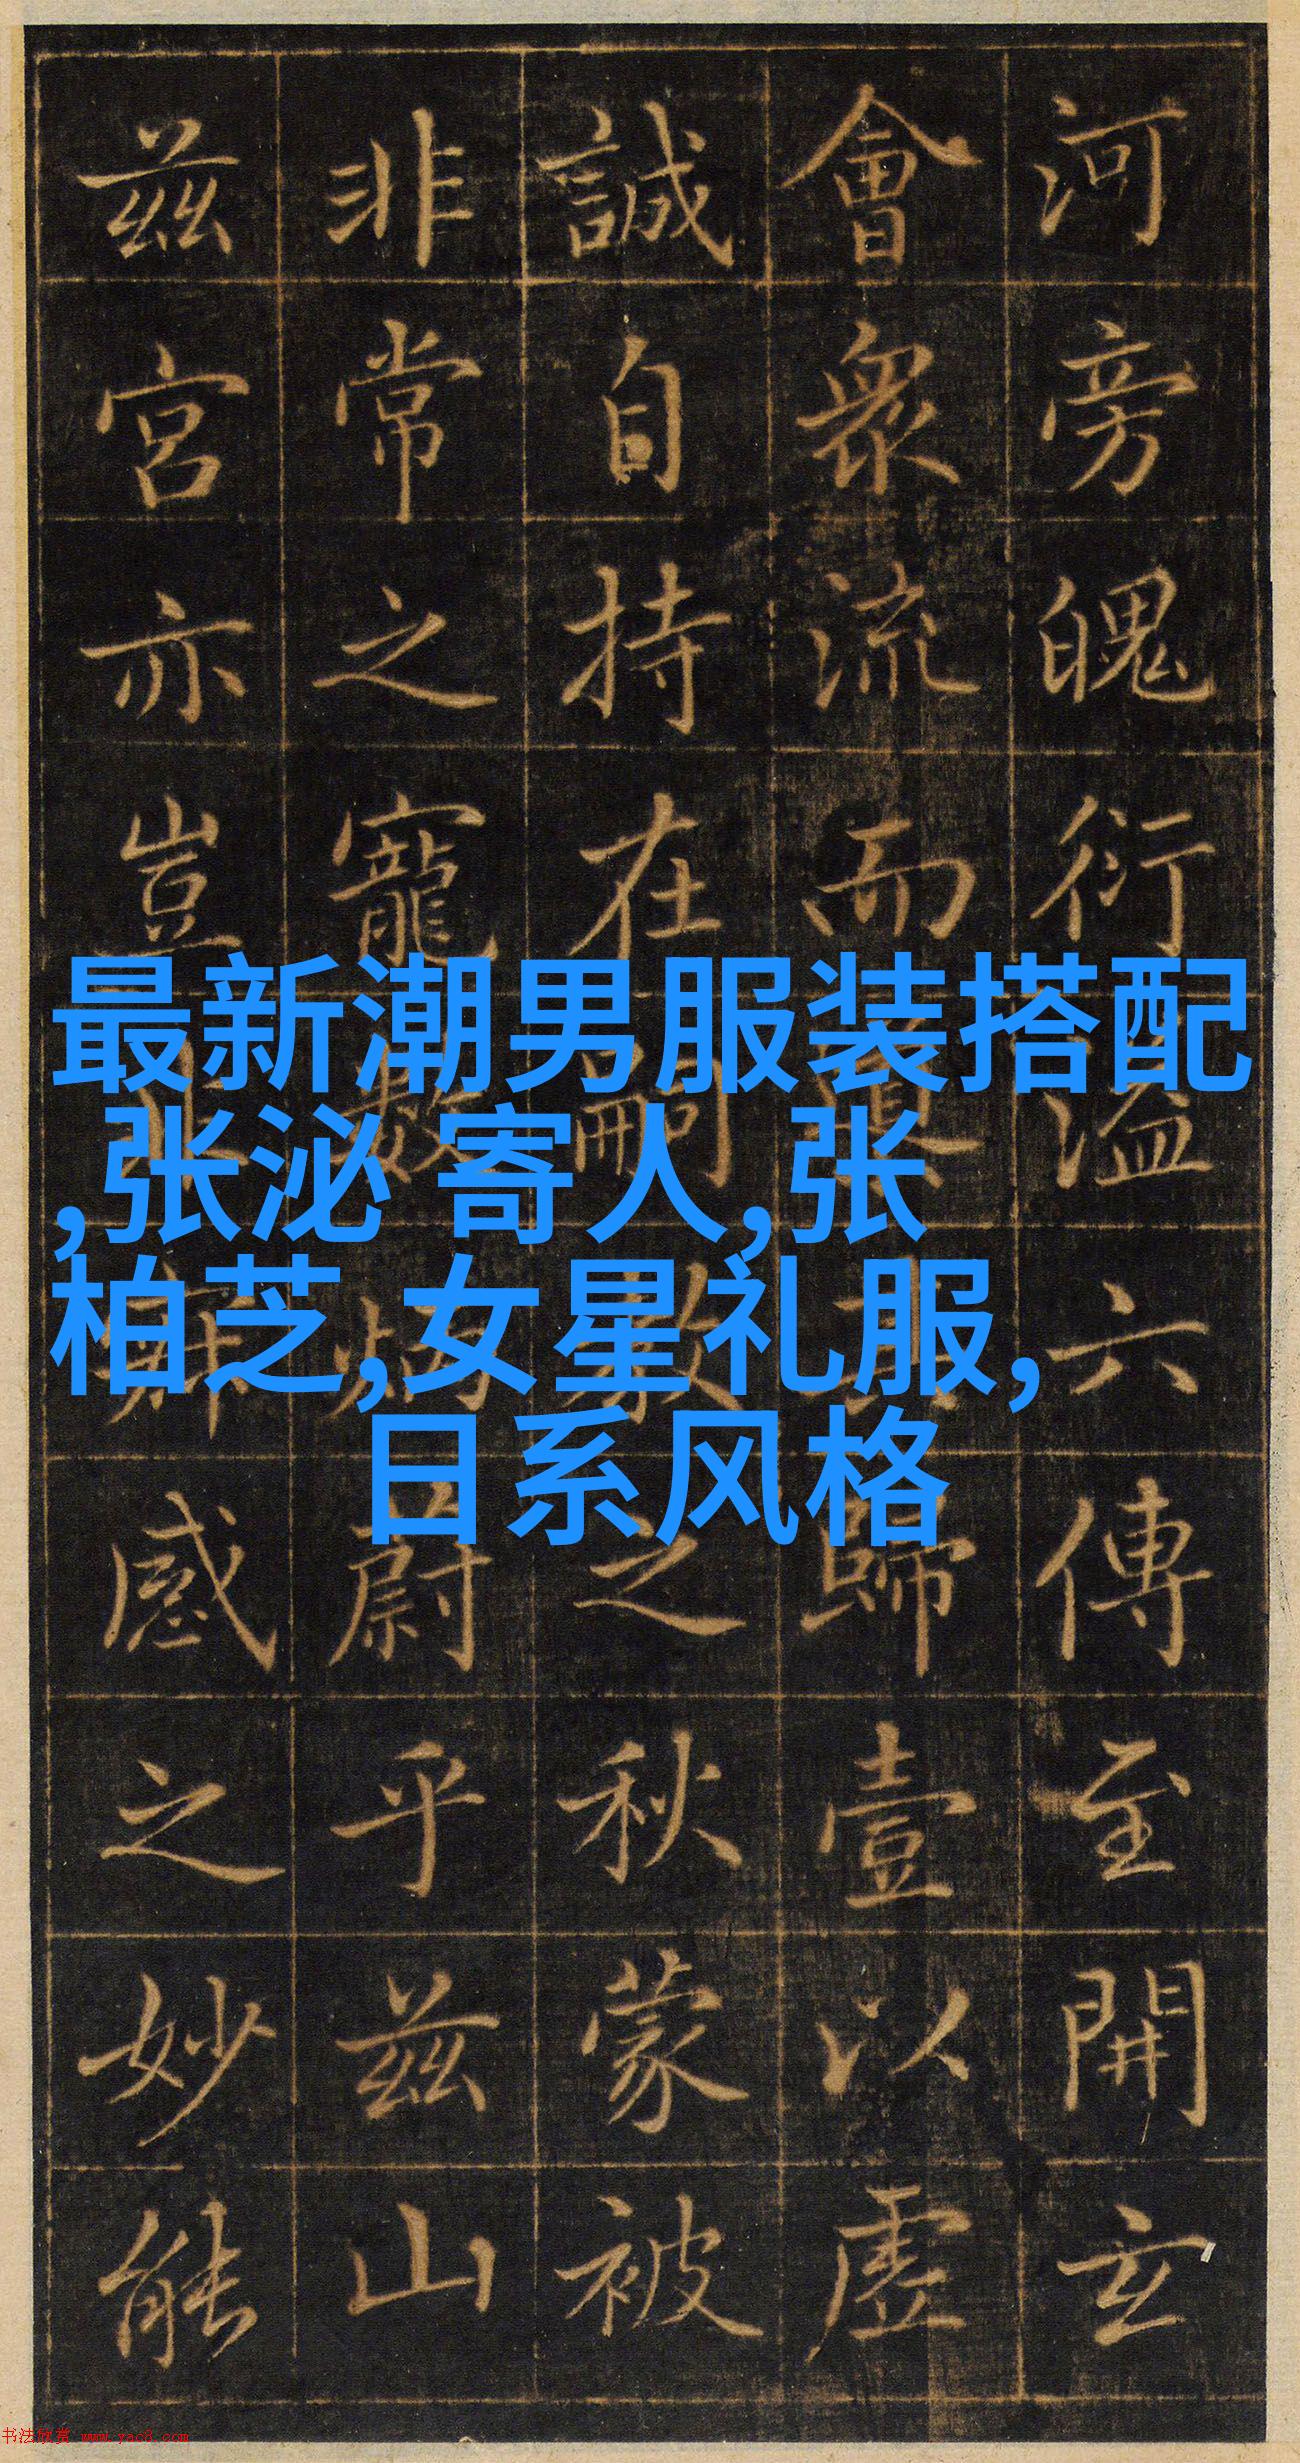 最新潮男服装搭配
,张泌 寄人,张
柏芝,女星礼服,
日系风格
河旁魄衍溢六傳至開玄
會衆流而歸壹以虛
誠自持在嗣教之秋蒙被
非常之寵數炳蔚乎兹山
兹宮亦豈感之妙能
书法欣赏 www.yac8.com